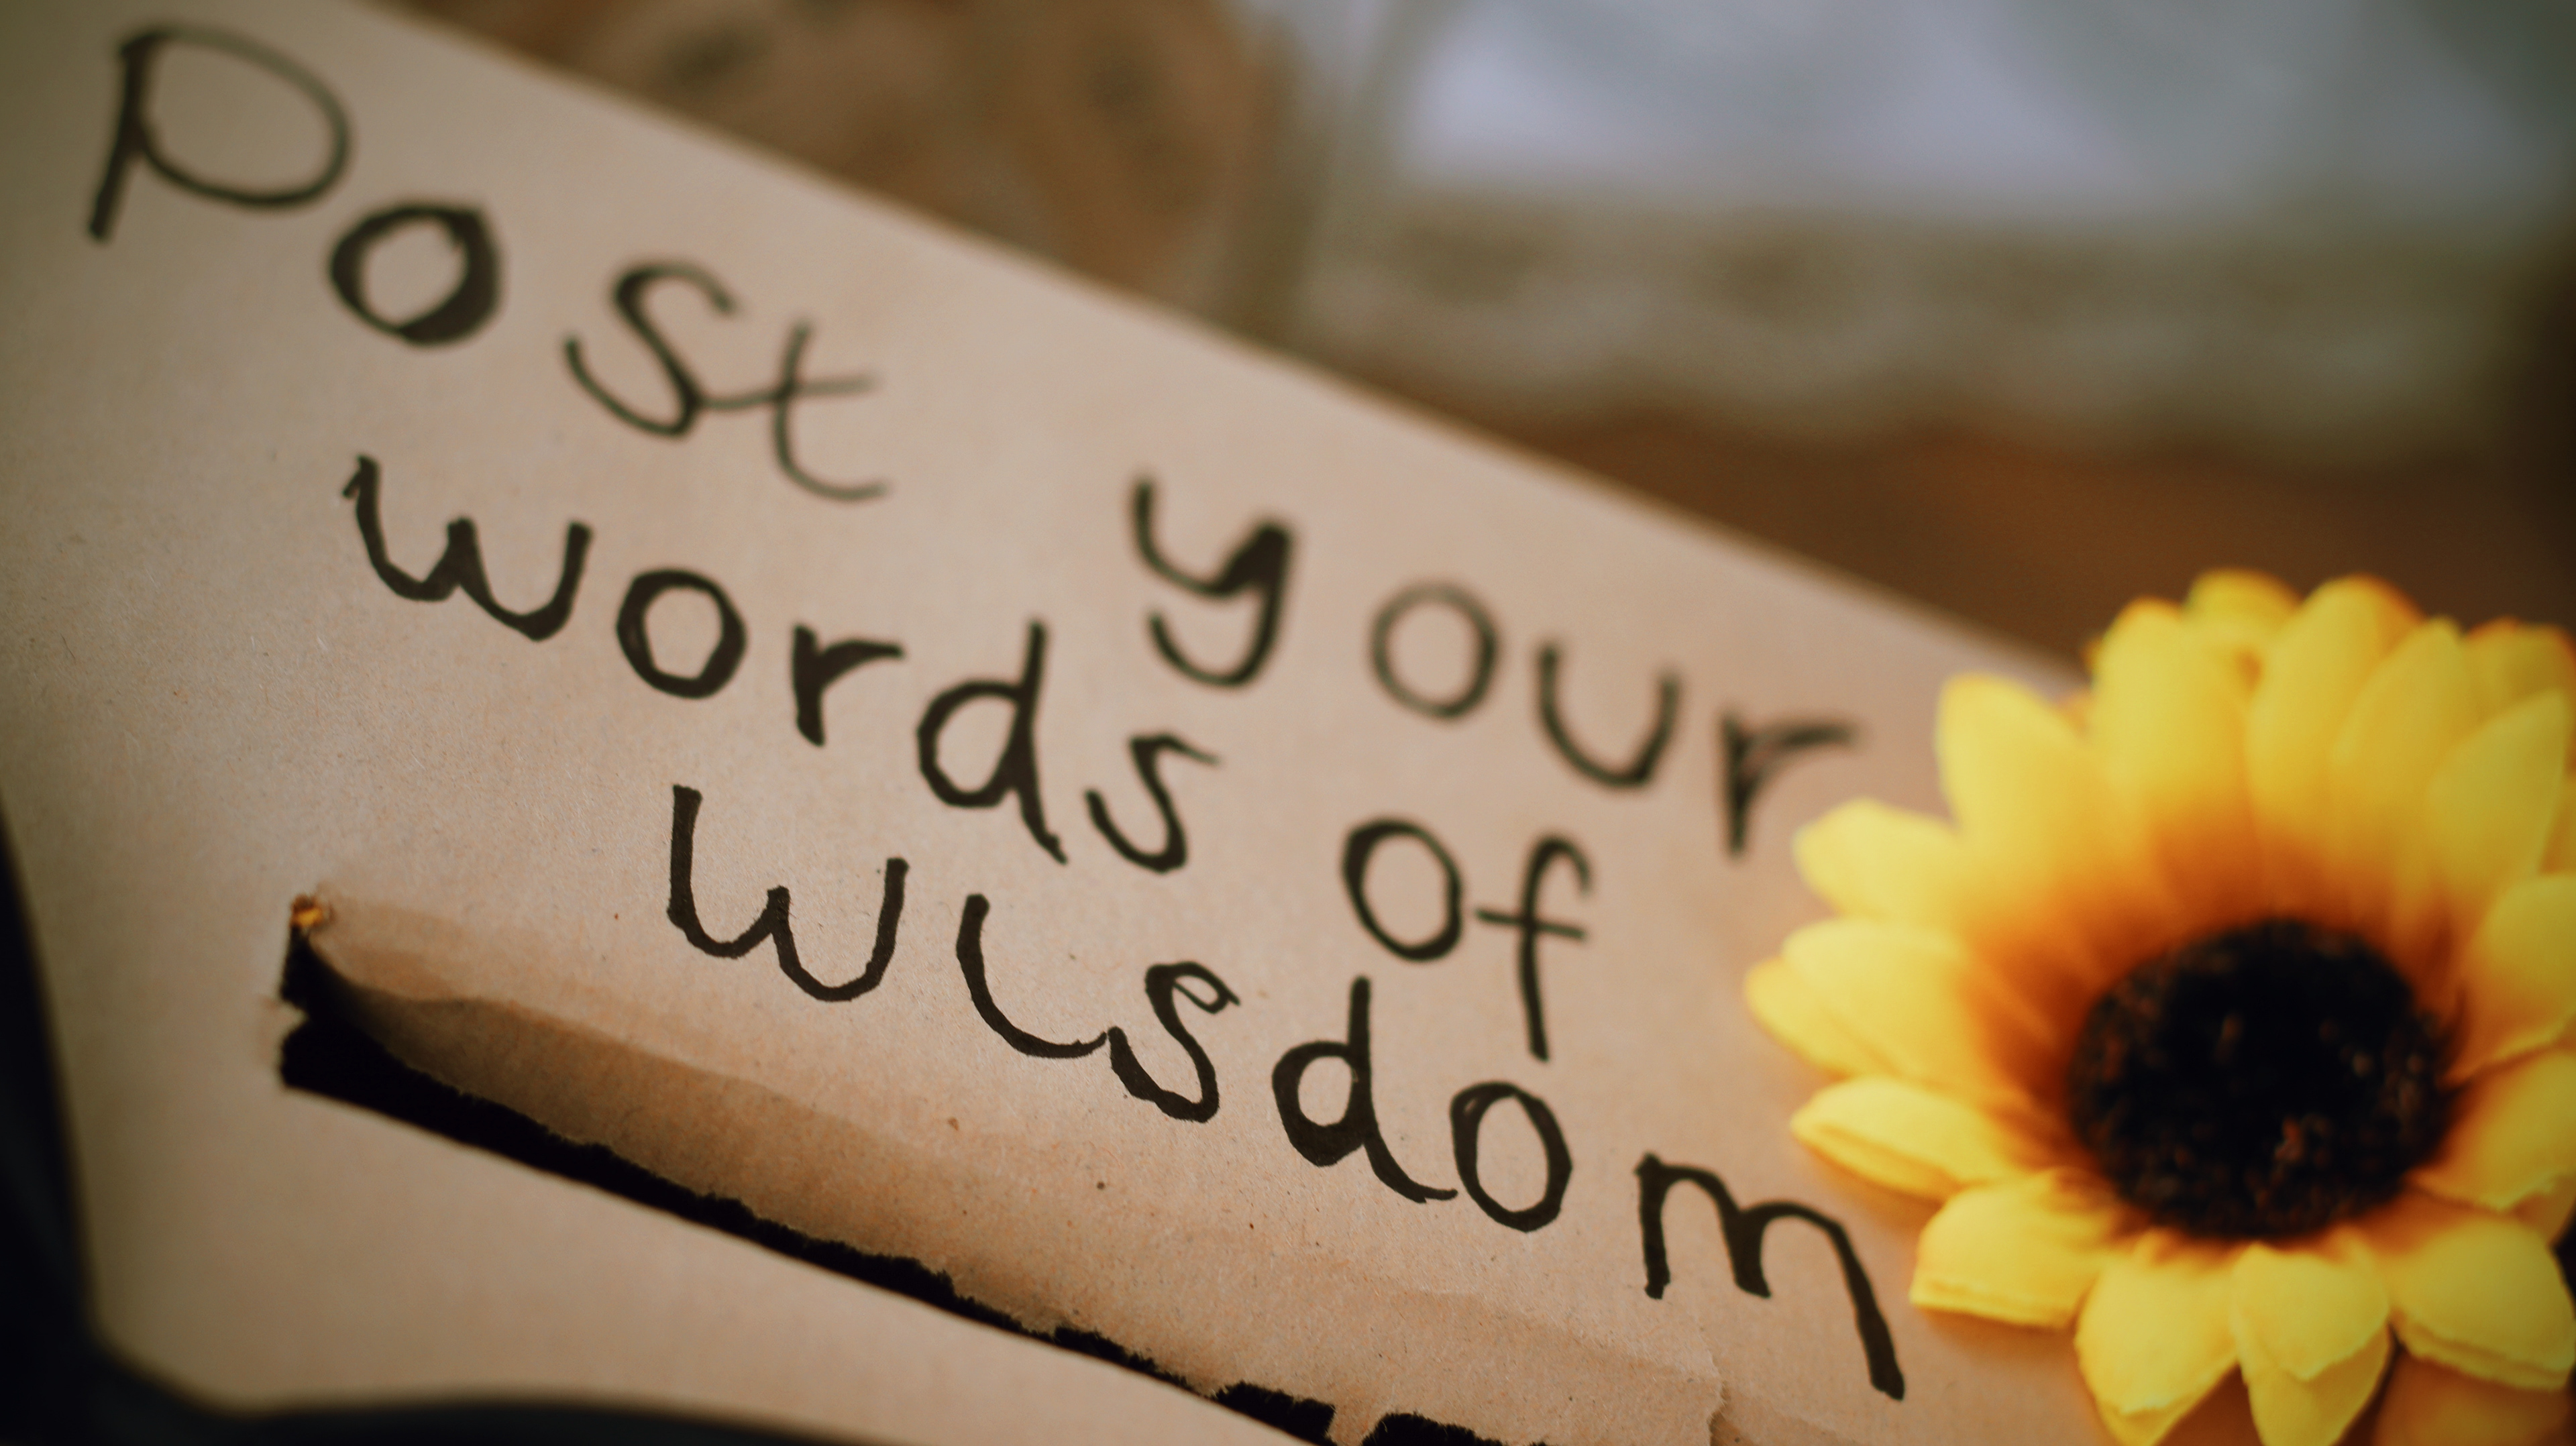 Post your
words of
wisdom